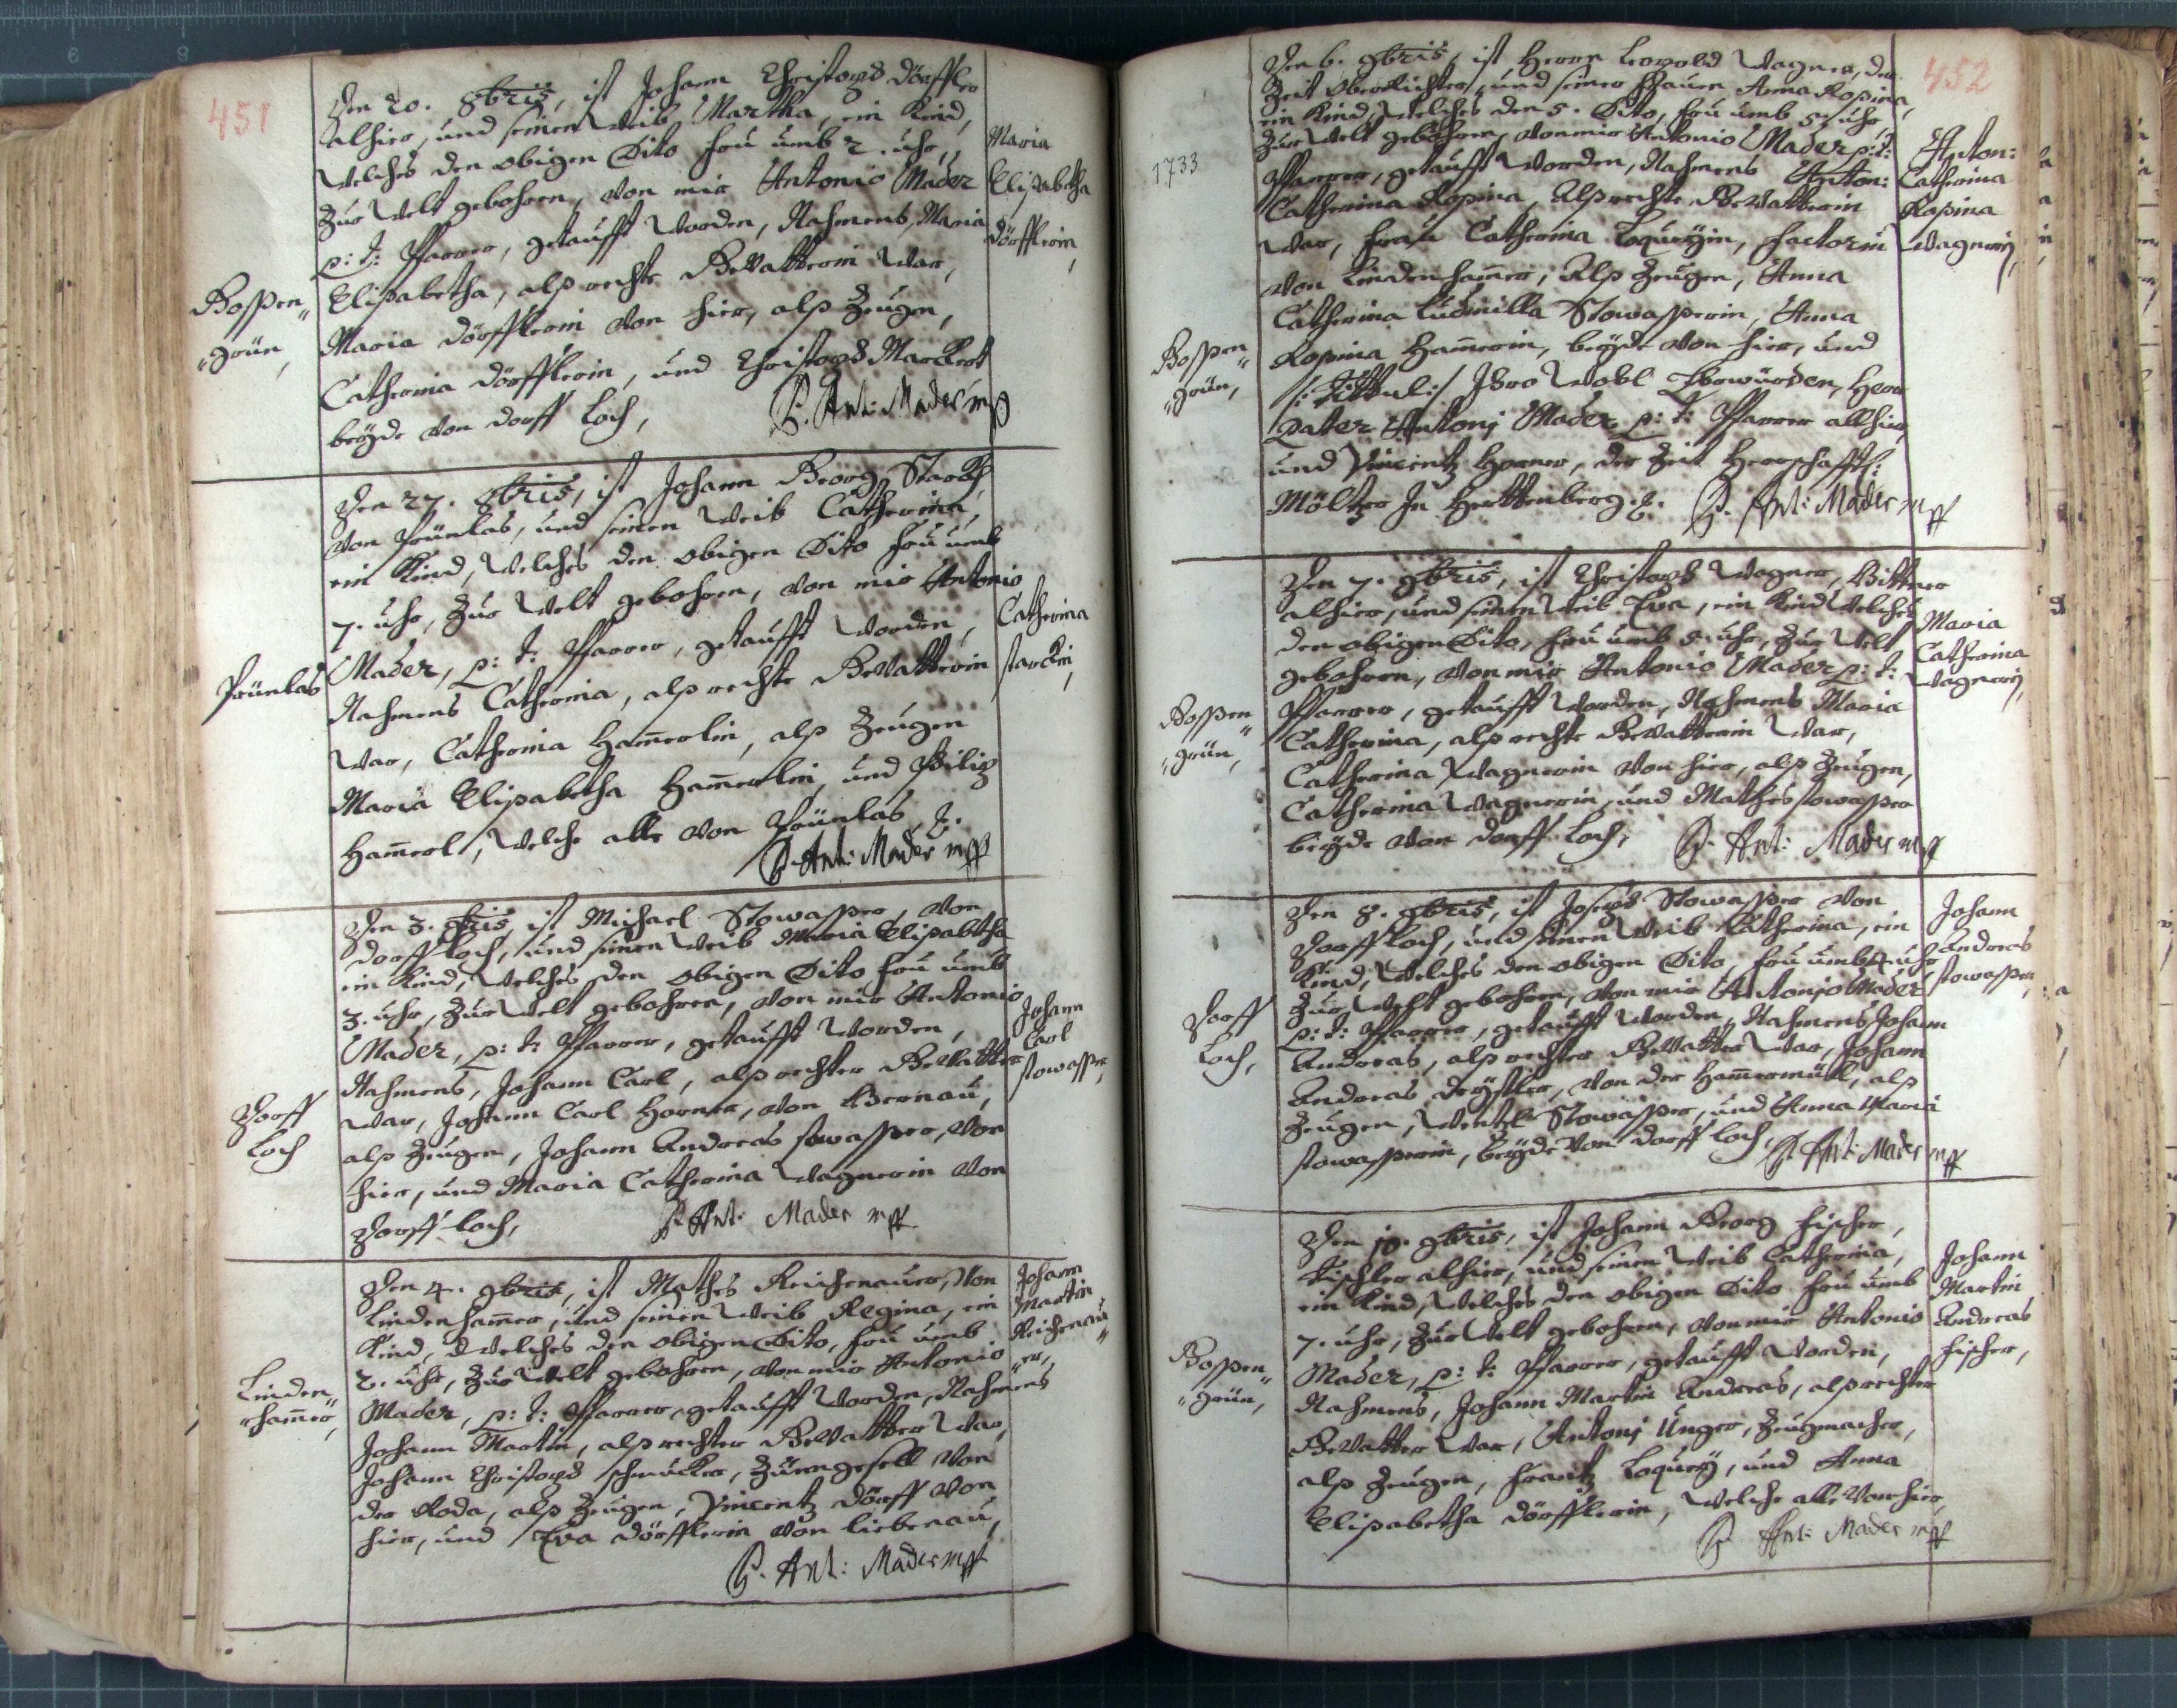 451
Den 20. 8bris, ist Johann Christoph Dörffler
alhier, und seinen Weib Martha, ein Kind,
welches den obigen Dito fru umb 2. uhr,
zur Welt gebohren, von mir Antonio Mader
p: t: Pfarrer, getaufft worden, Nahmens, Maria
Elisabetha, alß rechte Gevatterin war,
Maria Dörfflerin von hier, alß Zeugen,
Catherina Dörfflerin, und Christoph
beÿde von Dorff Loch,
P. Ant: Mader mp
Boßen
grün,
Maria
Elisabetha
Dörfflerin,
Den 27. 8bris, ist Johann Georg Starck
von Prünlas, und seinen Weib Catherina,
ein Kind, welches den obigen Dito fru umb
7. uhr, zur Welt gebohren, von mir Antonio
Mader, p: t: Pfarrer, getaufft worden,
Nahmens Catherina, alß rechte Gevatterin
war, Catherina Ham̄erlin, alß Zeugen
Maria Elisabetha Ham̄erlin, und Philip
Ham̄erl, welche alle von Prünlas, &.
P. Ant: Mader mpp
Prünlas
Catherina
starckin,
Den 3. 9bris, ist Michael Stowasser, von
Dorff Loch, und seinen Weib Maria Elisabetha
ein Kind, welches den obigen Dito fru umb
3. uhr, zur Welt gebohren, von mir Antonio
Mader, p: t: Pfarrer, getaufft worden,
Nahmens, Johann Carl, alß rechter Gevatter
war, Johann Carl Horner, von Bernau,
alß Zeugen, Johann Andreas stowasser, von
hier, und Maria Catherina Wagnerin von
Dorff Loch,
P. Ant: Mader mpp
Dorff
Loch
Johann
Carl
stowasser,
Den 4. 9bris, ist Mathes Reichenauer, von
Lindenham̄er, und seinen Weib Regina, ein
Kind, welches den obigen Dito, fru umb
2. uhr, zur Welt gebohren, von mir Antonio
Mader, p: t: Pfarrer, getaufft worden, Nahmens
Johann Martin, alß rechter Gevatter war,
Johann Christoph schmucker, Zürengesell von
der Roda, alß Zeugen, Vincentz Dörff von
hier, und Eva Dörfflerin von Liebenau,
P. Ant: Mader mpp
Linden
ham̄er,
Johann
Martin
Reichenau
er,
452
1733
Den 6. 9bris, ist Herrn Leopold Wagner, der
Zeit Oberrichter, und seiner Frauen Anna Rosina,
ein Kind, welches den 5. Dito, fru umb 5 uhr
zur Welt gebohren, von mir Antonio Mader p: t:
Pfarrer, getaufft worden, Nahmens Anton:
Catherina Rosina, Alß rechte Gevatterin
war, Frau Catherina Loqueÿin, Factorin
von Lindenham̄er, Alß Zeugen, Anna
Catherina Ludmilla Stowasserin, Anna
Rosina Ham̄erin, beÿde von hier, und
/: Tittul:/ Ihro Wohl Ehrwürden, Herr
Pater Antonj Mader p: t: Pfarrer allhier
und Vincentz Horner, der Zeit Herrschafftl:
Möltzer In Herttenberg. &. P. Ant: Mader mpp
Boßen
grün,
Anton:
Catherina
Rosina
Wagnerin,
Den 7. 9bris, ist Christoph Wagner, Bittner
alhier, und seinen Weib Eva, ein Kind welches
den obigen Dito, fru umb 5. uhr, zur Welt
gebohren, von mir Antonio Mader p: t:
Pfarrer, getaufft worden, Nahmens Maria
Catherina, alß rechte Gevatterin war,
Catherina Wagnerin von hier, alß Zeugen,
Catherina Wagnerin, und Mathes stowasser
beÿde von Dorff Loch, P. Ant: Mader mp
Boßen
grün,
Maria
Catherina
Wagnerin,
Den 8. 9bris, ist Joseph Stowasser von
Dorff Loch, und seinen Weib Catherina, ein
Kind, welches den obigen Dito, fru umb 4 uhr
zur Welt gebohren, von mir Antonio Mader
p: t: Pfarrer, getaufft worden, Nahmens Johann
Andreas, alß rechter Gevatter war, Johann
Andreas, von der Ham̄ermühl, alß
Zeugen, Wentzl Stowasser, und Anna Maria
stowasserin, beÿde von Dorff Loch, P. Ant: Mader mpp
Dorff
Loch,
Johann
Andreas
stowasser,
Den 10. 9bris, ist Johann Georg Fischer,
Tischler alhier, und seinen Weib Catherina,
ein Kind, welches den obigen Dito fru umb
7. uhr, zur Welt gebohren, von mir Antonio
Mader, p: t: Pfarrer, getaufft worden,
Nahmens, Johann Martin Andreas, alß rechter
Gevatter war, Antonj Unger, Zeugmacher,
alß Zeugen, Frantz Loqueÿ, und Anna
Elisabetha Dörfflerin, welche alle von hier,
P. Ant: Mader mpp
Boßen
grün,
Johann
Martin
Andreas
Fischer,